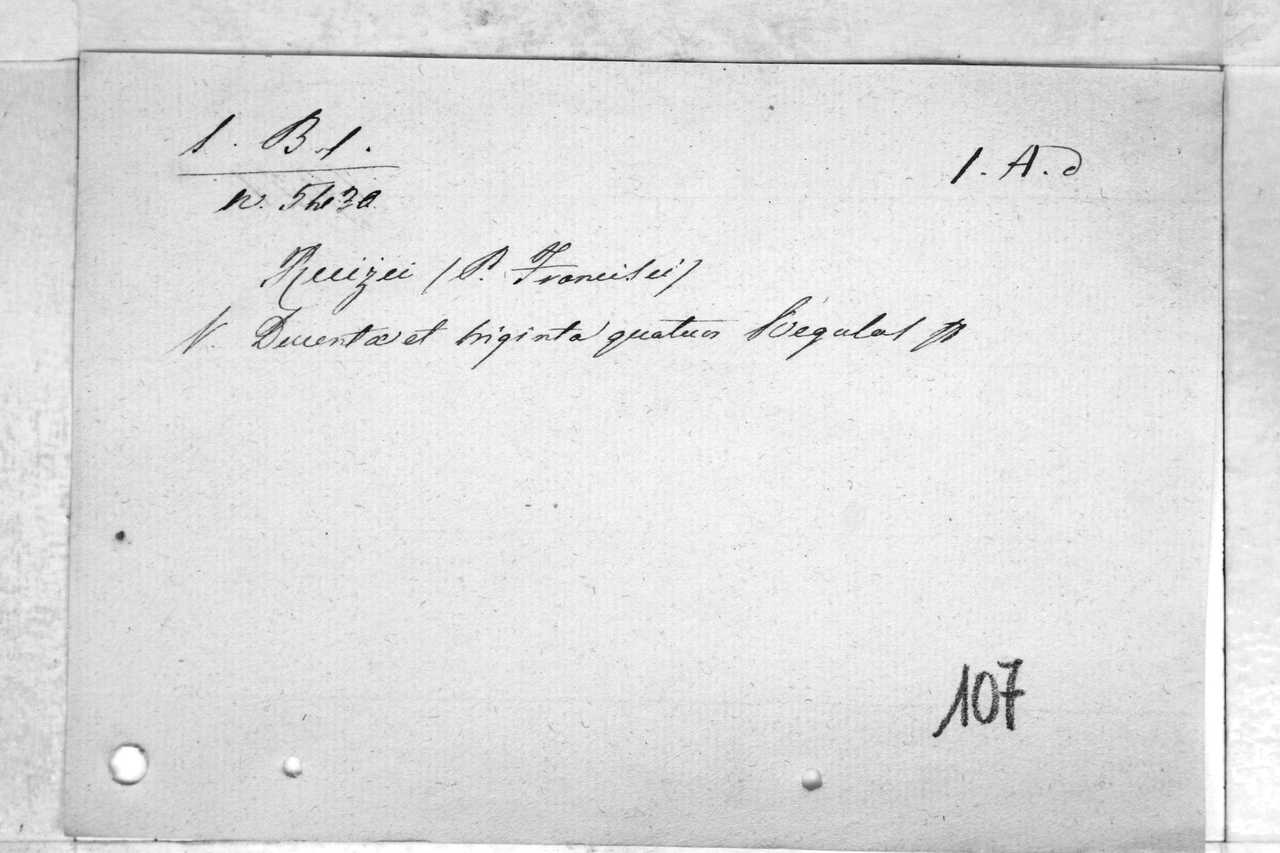 1. B 1.
1. A. d
Ruizii (P. Francisci)
V. Ducentæ et triginta quatuor Regulas
107